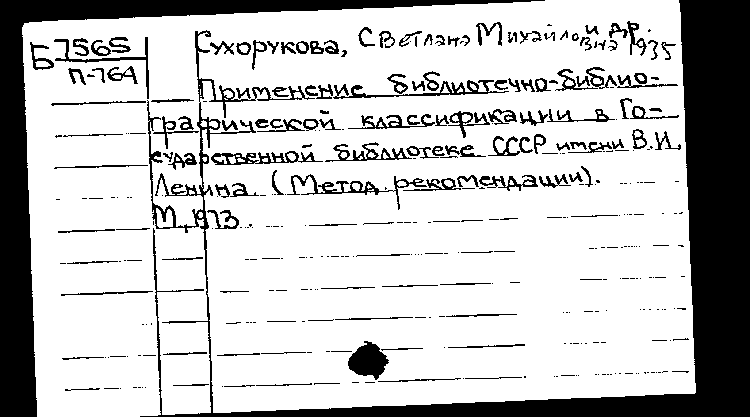 Б 7565
П-764
Сухорукова, Светлана Михайловна и др. 1935
Применение библиотечно-библио-
графической классификации в Го-
сударственной библиотеке СССР имени В.И.
Ленина. (Метод. рекомендации).
М., 1973.